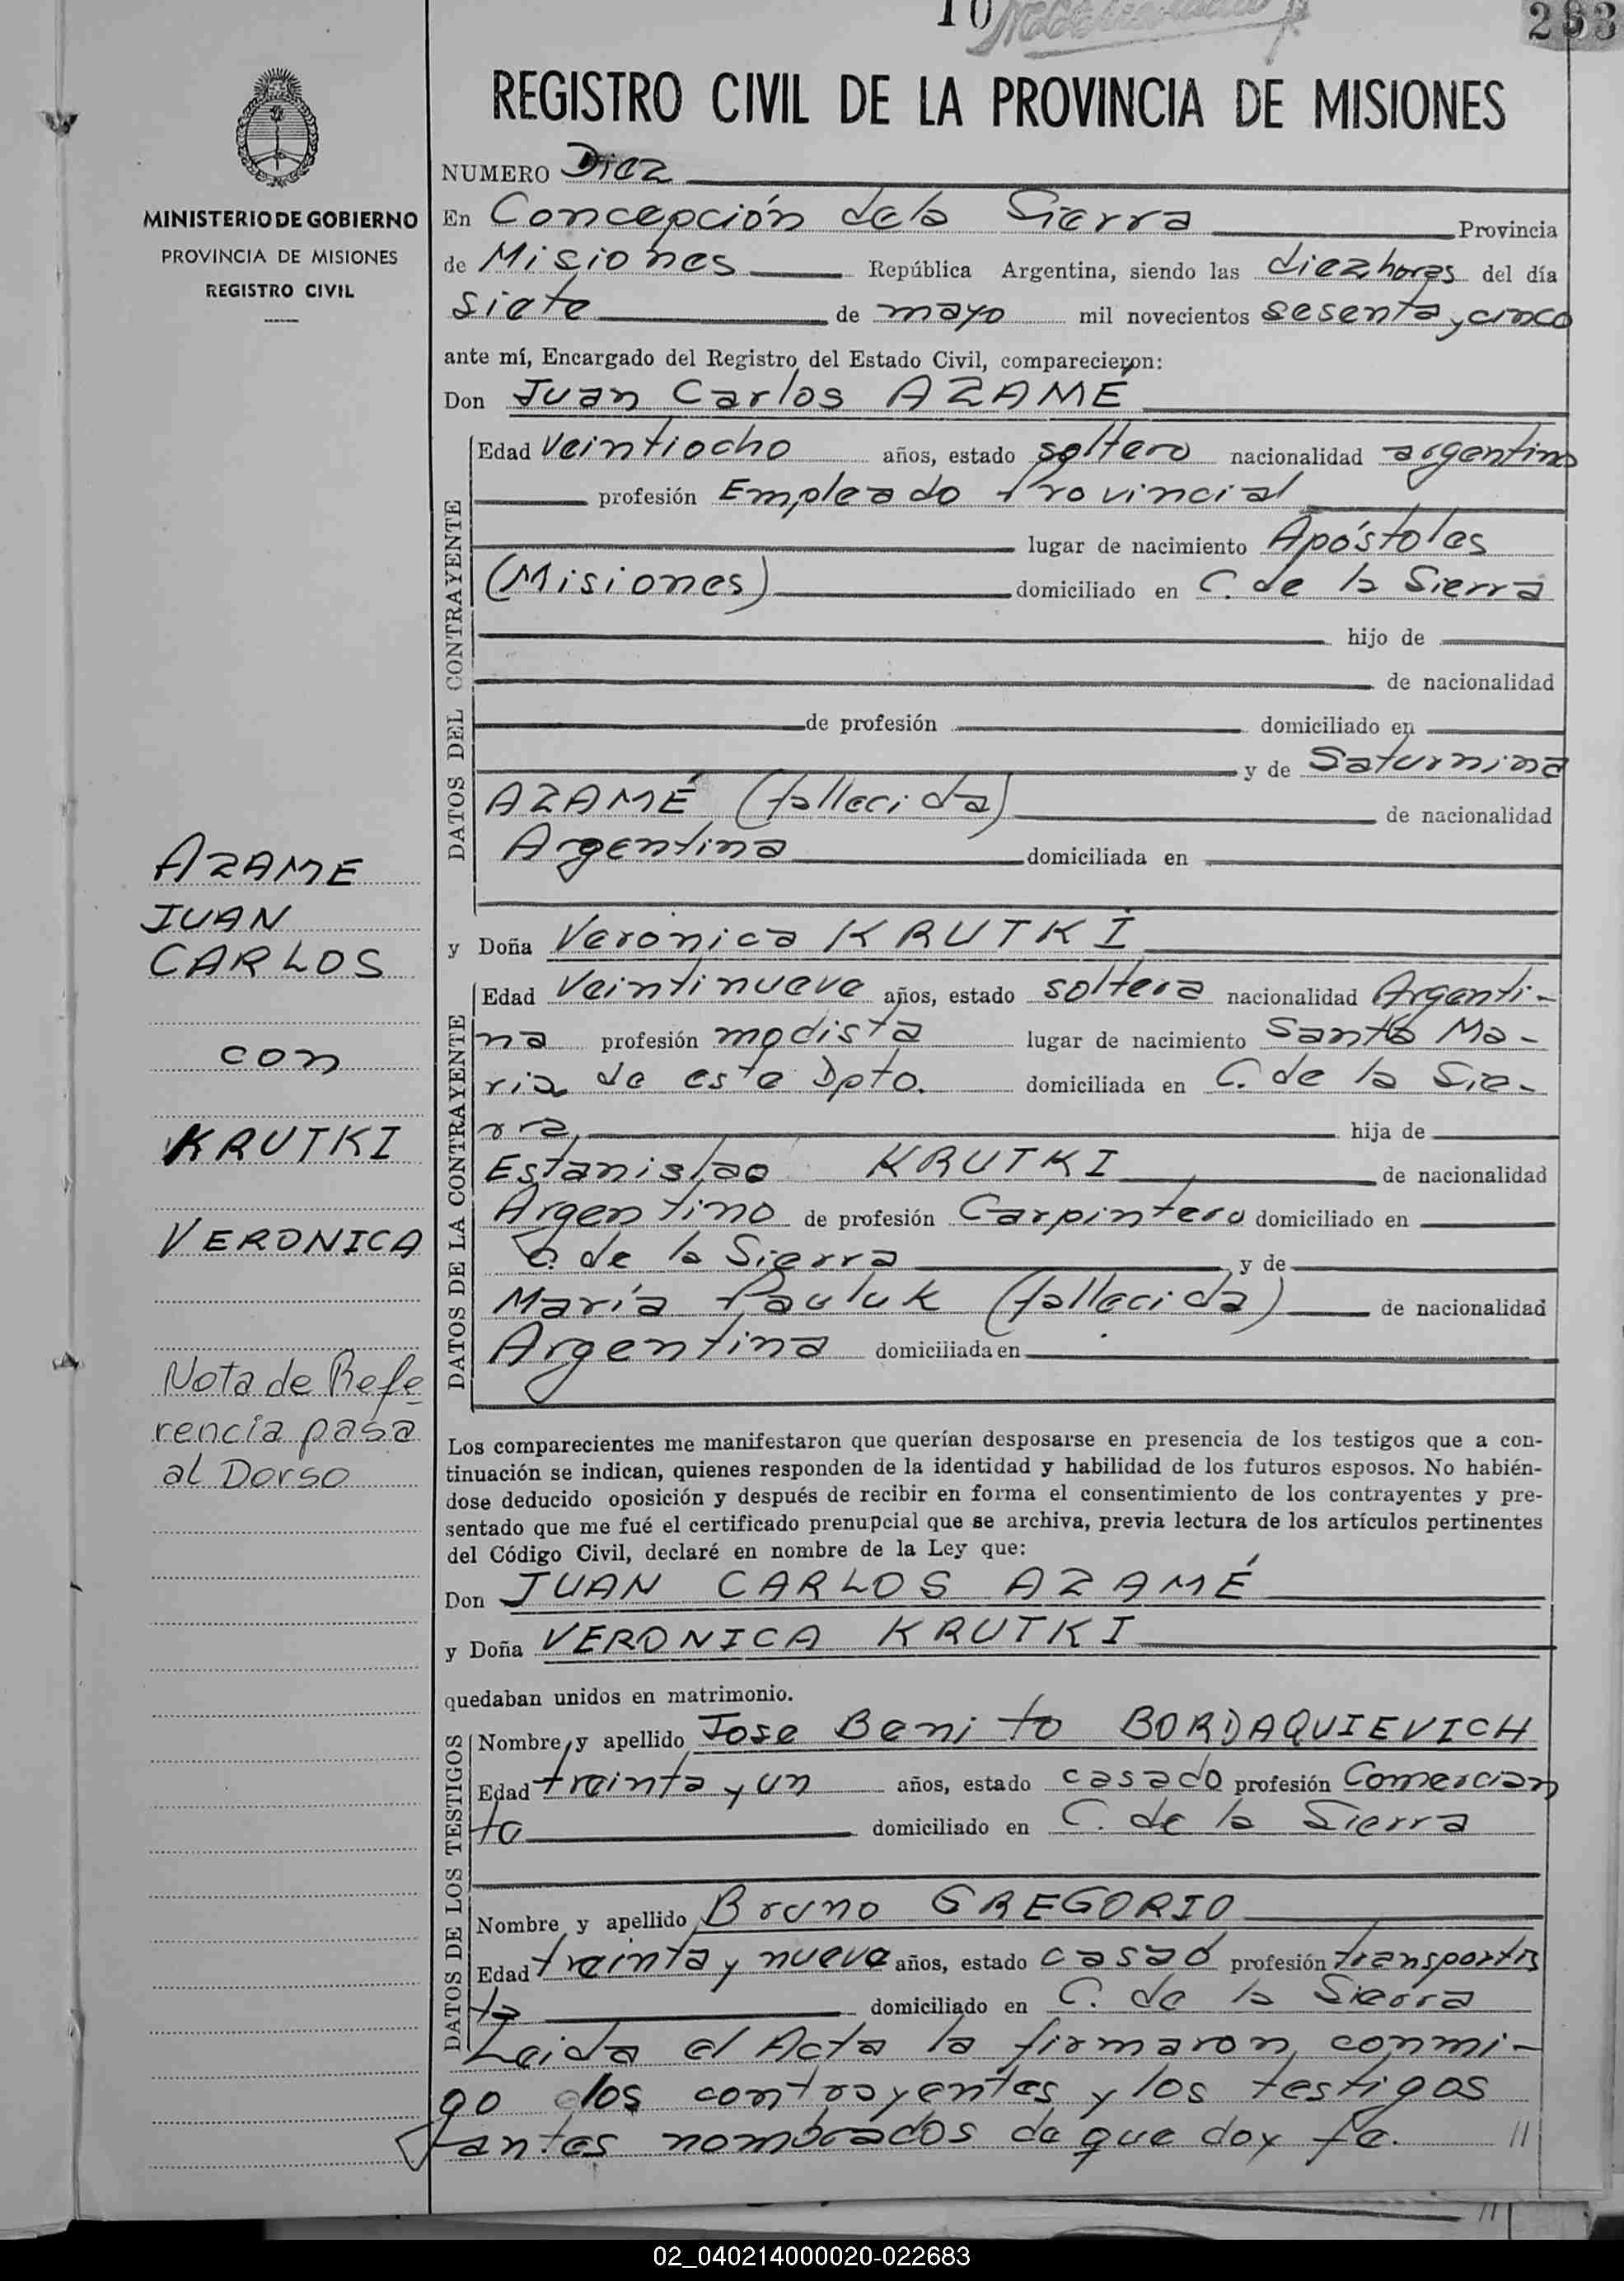 10
283
REGISTRO CIVIL DE LA PROVINCIA DE MISIONES
MINISTERIO DE GOBIERNO
PROVINCIA DE MISIONES
REGISTRO CIVIL
NUMERO Diez
En Concepción de la Sierra Provincia
de Misiones República Argentina, siendo las diez horas del día
siete de mayo mil novecientos sesenta y cinco
ante mí, Encargado del Registro del Estado Civil, comparecieron:
Don Juan Carlos AZAMÉ
DATOS DEL CONTRAYENTE
Edad veintiocho años, estado soltero nacionalidad argentino
profesión Empleado Provincial
lugar de nacimiento Apóstoles
(Misiones) domiciliado en C. de la Sierra
hijo de
de nacionalidad
de profesión domiciliado en
y de Saturnina
AZAMÉ (fallecida) de nacionalidad
Argentina domiciliada en
y Doña Veronica KRUTKI
DATOS DE LA CONTRAYENTE
Edad Veintinueve años, estado soltera nacionalidad Argenti-
na profesión modista lugar de nacimiento Santa Ma-
ria de este Dpto. domiciliada en C. de la Sie-
rra, hija de
Estanislao KRUTKI de nacionalidad
Argentino de profesión Carpintero domiciliado en
C. de la Sierra y de
María Pauluk (fallecida) de nacionalidad
Argentina domiciliada en
AZAME
JUAN
CARLOS
con
KRUTKI
VERONICA
Nota de Refe-
rencia pasa
al Dorso
Los comparecientes me manifestaron que querían desposarse en presencia de los testigos que a con-
tinuación se indican, quienes responden de la identidad y habilidad de los futuros esposos. No habién-
dose deducido oposición y después de recibir en forma el consentimiento de los contrayentes y pre-
sentado que me fué el certificado prenupcial que se archiva, previa lectura de los artículos pertinentes
del Código Civil, declaré en nombre de la Ley que:
Don JUAN CARLOS AZAMÉ
y Doña VERONICA KRUTKI
quedaban unidos en matrimonio.
DATOS DE LOS TESTIGOS
Nombre y apellido Jose Benito BORDAQUIEVICH
Edad treinta y un años, estado casado profesión Comercian
te domiciliado en C. de la Sierra
Nombre y apellido Bruno GREGORIO
Edad treinta y nueve años, estado casado profesión transportis
ta domiciliado en C. de la Sierra
Leida el Acta la firmaron conmi-
go los contrayentes y los testigos
antes nombrados de que doy fe. //
02_040214000020-022683